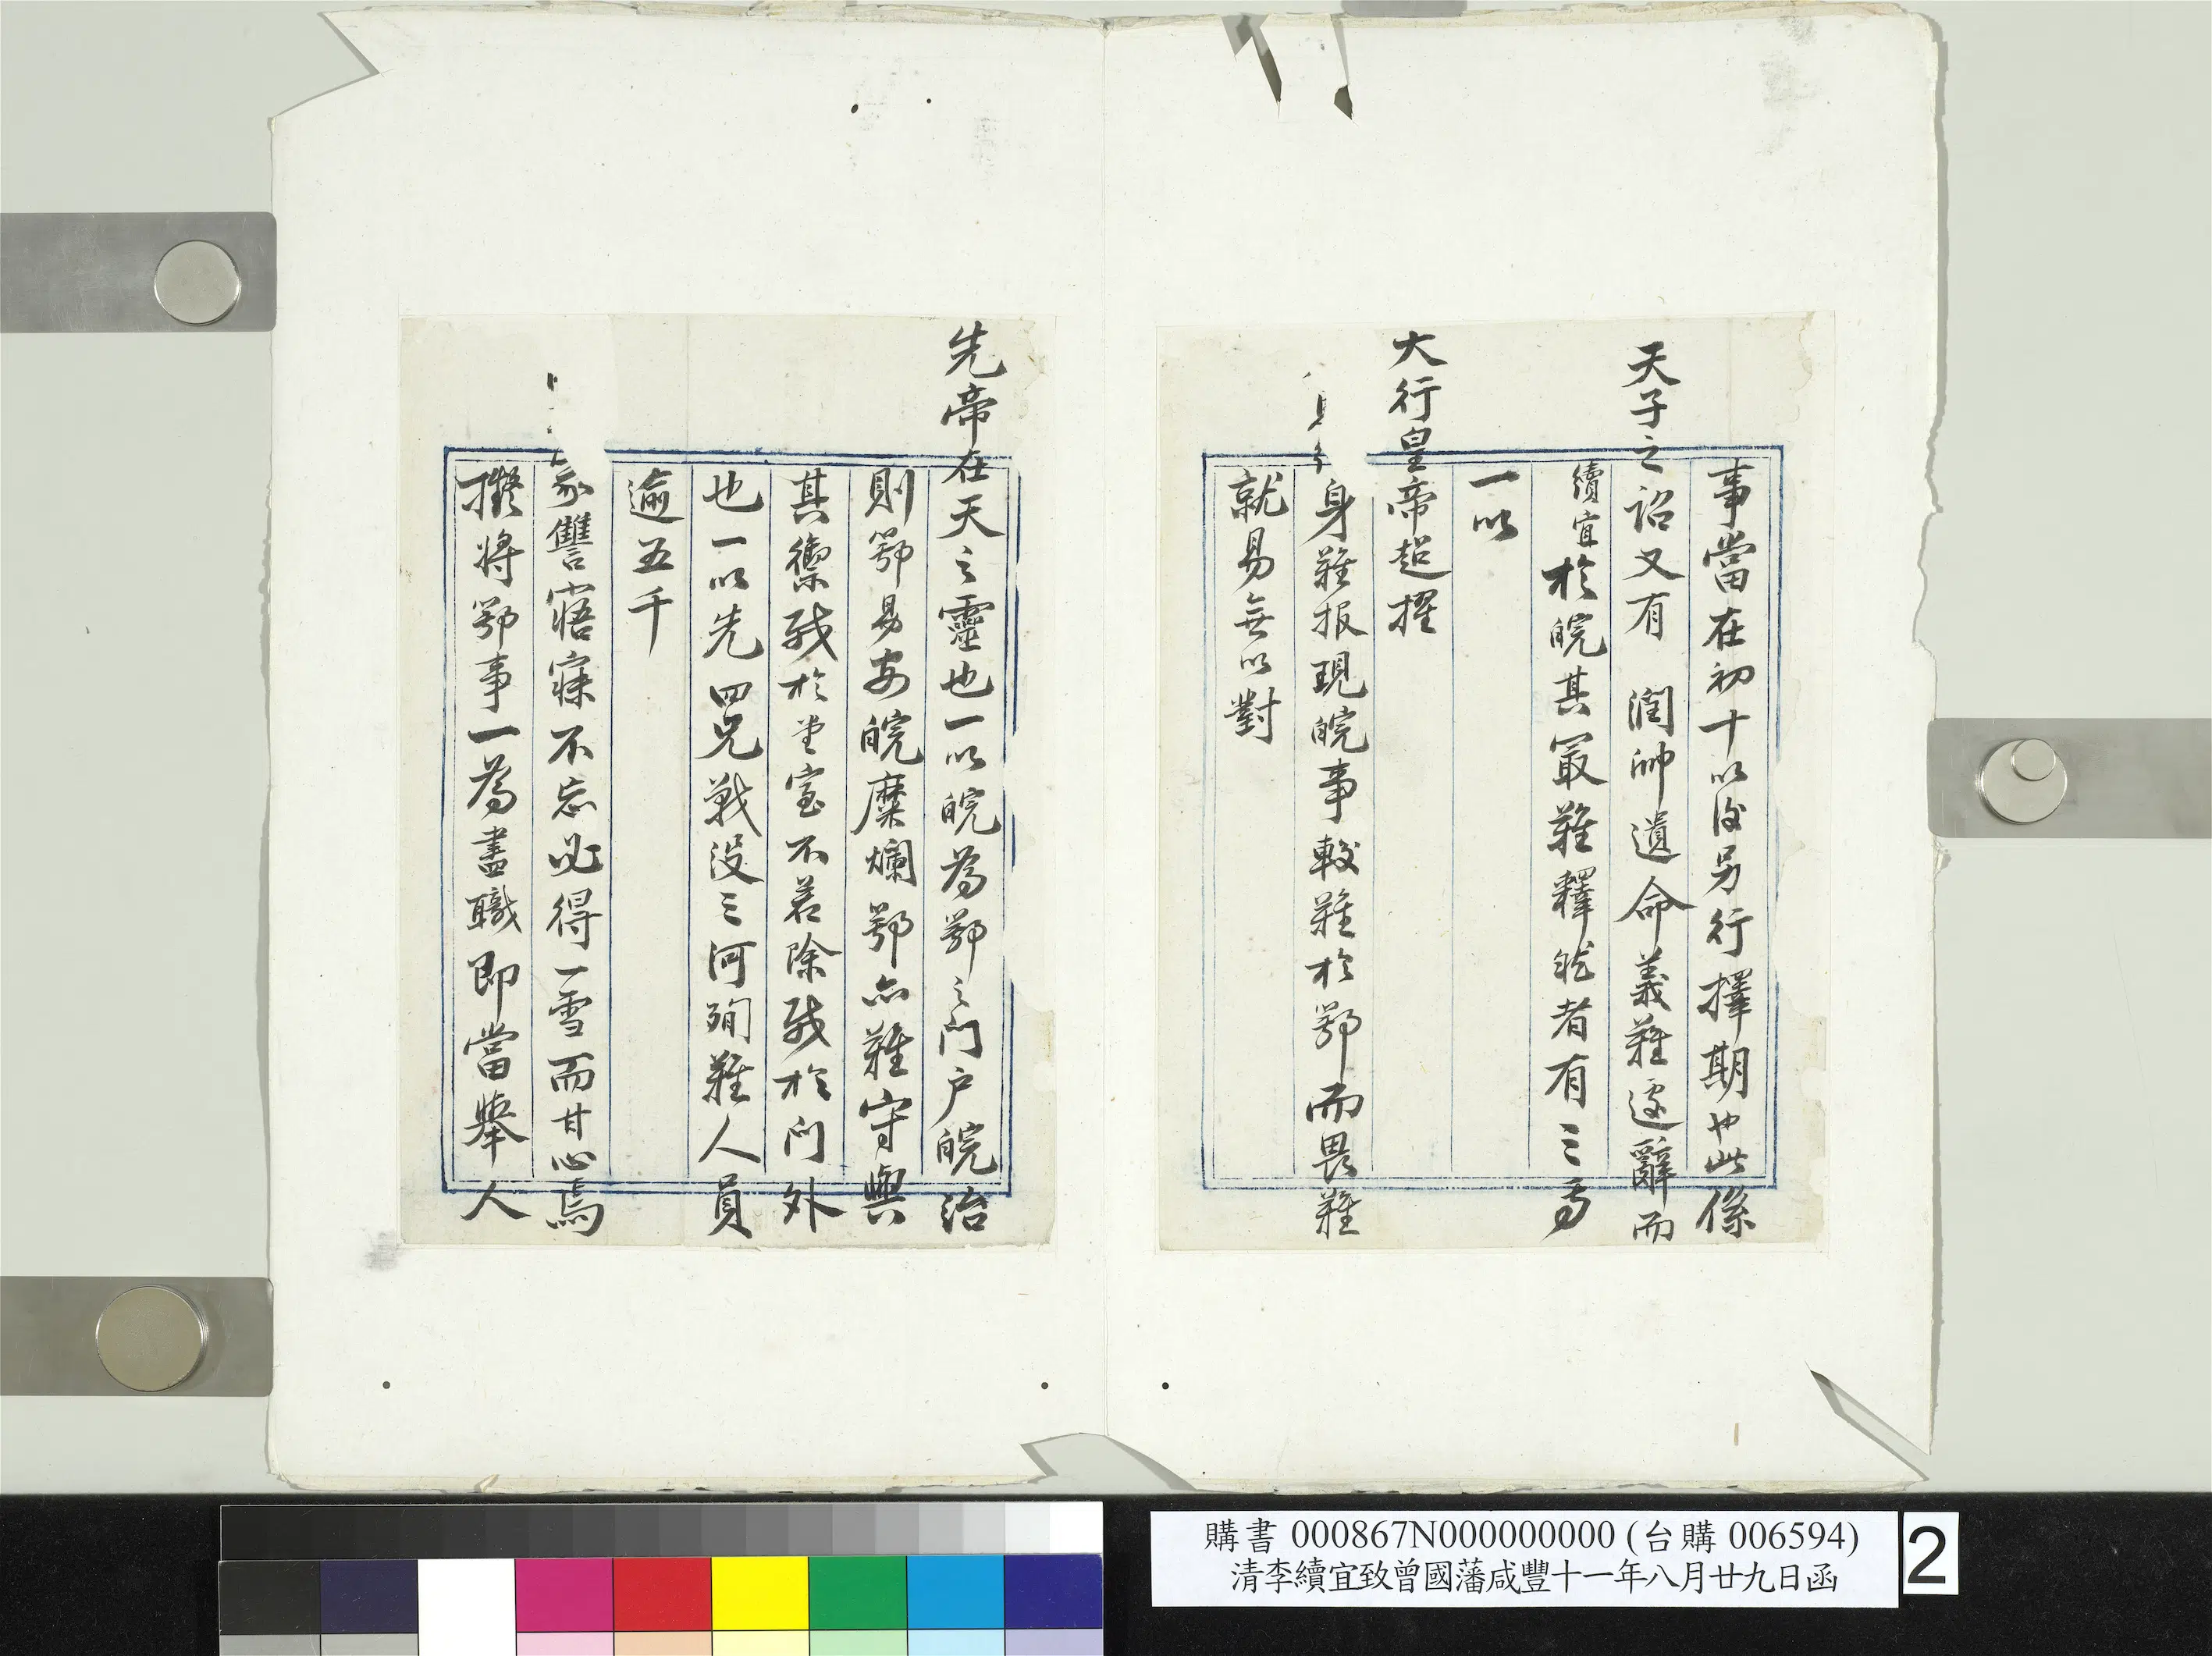 事當在初十以後另行擇期也此係
天子之詔又有　潤帥遺命義難遽辭而
續宜於皖其最難釋然者有三焉
一以
大行皇帝超擢
身難報現皖事較難於鄂而畏難
就易無以對
先帝在天之靈也一以皖為鄂之門户皖治
則鄂易安皖糜爛鄂亦難守與
其禦賊於堂室不若除賊於門外
也一以先四兄戰沒三河殉難人員
逾五千
家讐寤寐不忘必得一雪而甘心焉
擬將鄂事一為盡職即當舉人
購書 000867N000000000 (台購 006594)
清李續宜致曾國藩咸豐十一年八月廿九日函
2